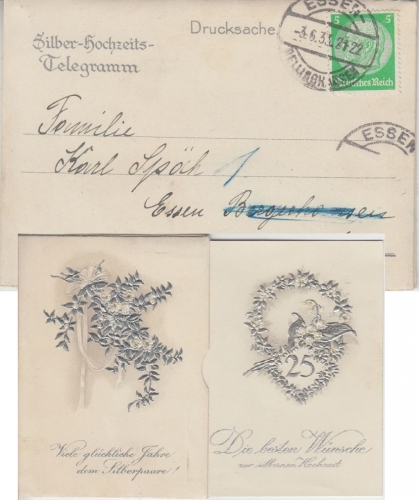 Silber-Hochzeits-
Telegramm
Drucksache.
ESSEN
-3.6.33. 21-22
5 5
Deutsches Reich
ESSEN
Familie
Karl Späh
Essen
25
Viele glückliche Jahre
dem Silberpaare!
Die besten Wünsche
zur silbernen Hochzeit